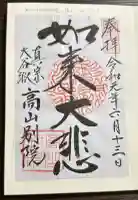 奉拝 令和元年六月十三日
如来大悲
真宗
大谷派
高山別院